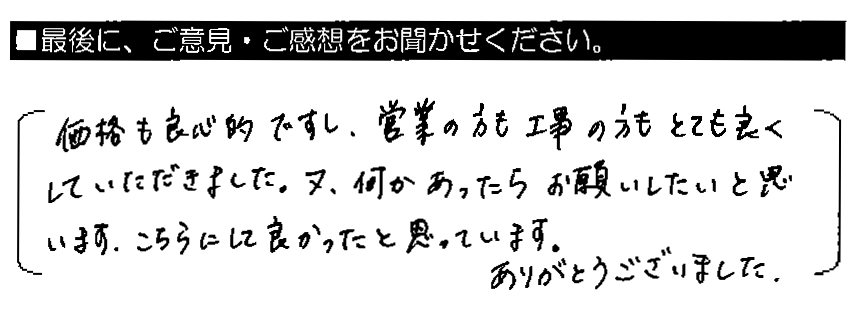 ■最後に、ご意見・ご感想をお聞かせください。
価格も良心的ですし、営業の方も工事の方もとても良く
していただきました。又、何かあったらお願いしたいと思
います、こちらにして良かったと思っています。
ありがとうございました。